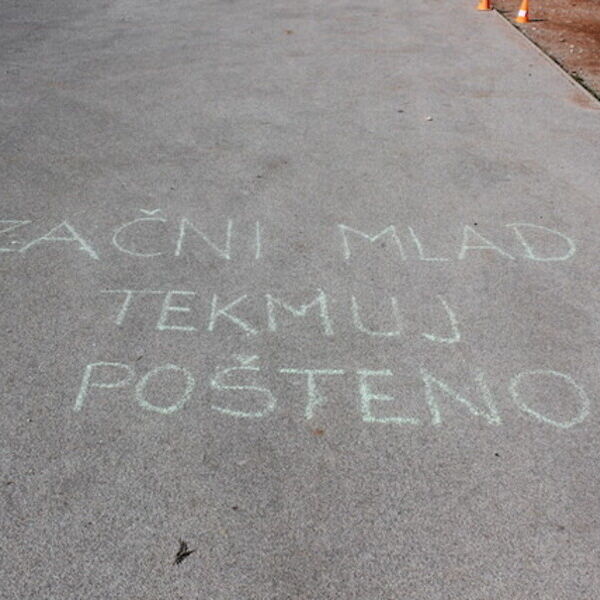 ZAČNI MLAD
TEKMUJ
POŠTENO